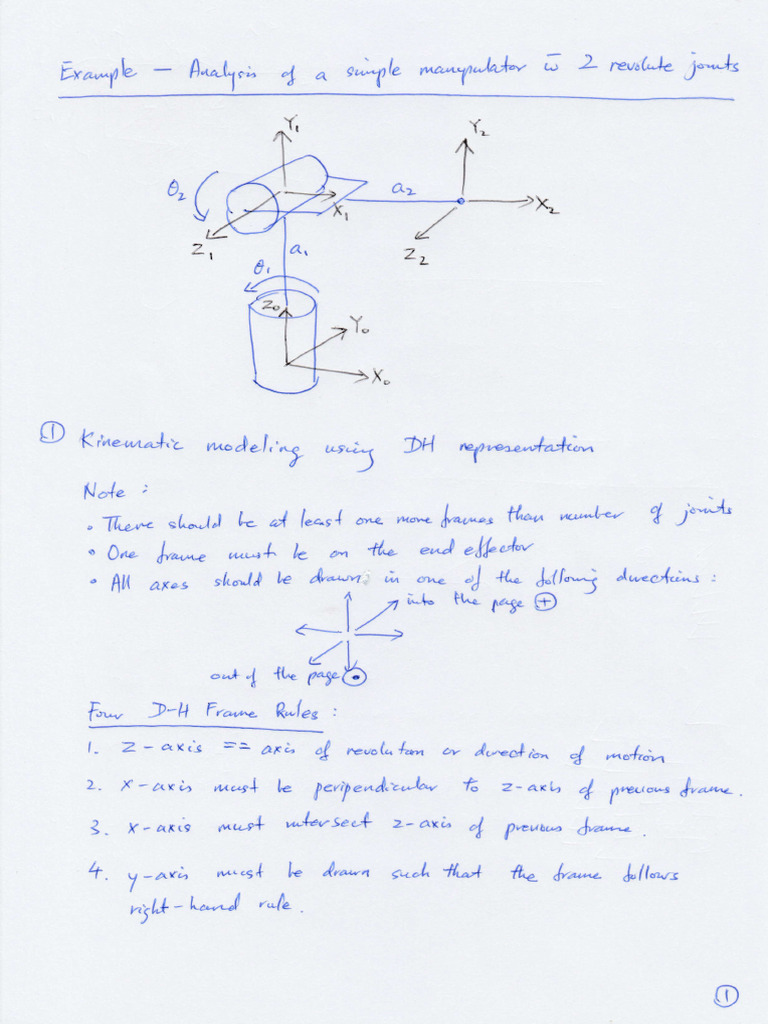 Example — Analysis of a simple manipulator w̄ 2 revolute joints
Y₁
Y₂
θ₂
a₂
X₁
X₂
Z₁
a₁
Z₂
θ₁
Z₀
Y₀
X₀
① Kinematic modeling using DH representation
Note :
• There should be at least one more frames than number of joints
• One frame must be on the end effector
• All axes should be drawn in one of the following directions :
into the page ⊕
out of the page ⊙
Four D-H Frame Rules :
1. z-axis == axis of revolution or direction of motion
2. x-axis must be peripendicular to z-axis of previous frame.
3. x-axis must intersect z-axis of previous frame.
4. y-axis must be drawn such that the frame follows
right-hand rule.
①